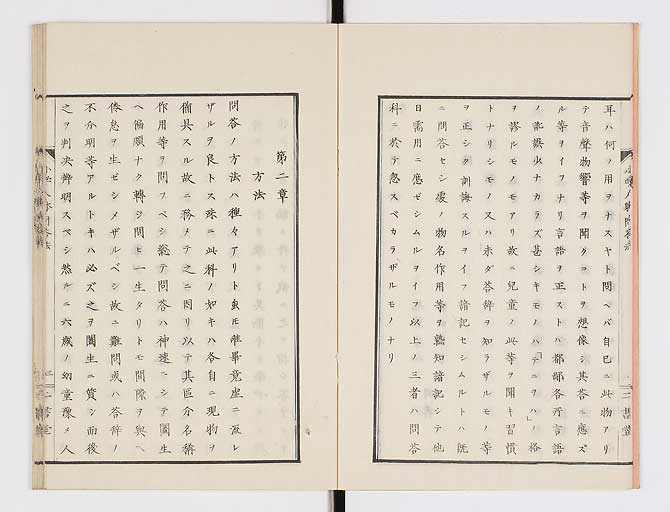 耳ハ何ノ用ヲナスヤト問ヘバ自己ニ此物アリ
テ音聲物響等ヲ聞クコトヲ想像シ其答ニ應ズ
ル等ヲイフナリ言語ヲ正ストハ都鄙各所言語
ノ訛謬少ナカラズ甚シキモノハ「テニヲハ」ノ格
ヲ謬ルモノモアリ故ニ兒童ノ此等ヲ聞キ習慣
トナリシモノ又ハ未ダ答辞ヲ知ラザルモノ等
ヲ正シク訓誨スルヲイフ諳記セシムルトハ既
ニ問答セシ處ノ物名作用等ヲ熟知諳記シテ他
日需用ニ應ゼシムルヲイフ以上ノ三者ハ問答
科ニ於テ忽スベカラザルモノナリ
第二章
方法
問答ノ方法ハ種々アリト虽モ畢竟座ニ汲レ
ザルヲ良トス殊ニ此科ノ如キハ各自ニ現物ヲ
備具スル故ニ務メテ之ニ因リ以テ其區分名稱
作用等ヲ問フベシ総テ問答ハ神速ニシテ闔生
ヘ偏頗ナク轉ジ問ヒ一生タリトモ間隙ヲ與ヘ
倦怠ヲ生ゼシメザルベシ故ニ難問或ハ答辞ノ
不分明等アルトキハ必ズ之ヲ闔生ニ質シ而後
之ヲ判决辨明スベシ然ルニ六歳ノ幼童豫メ人